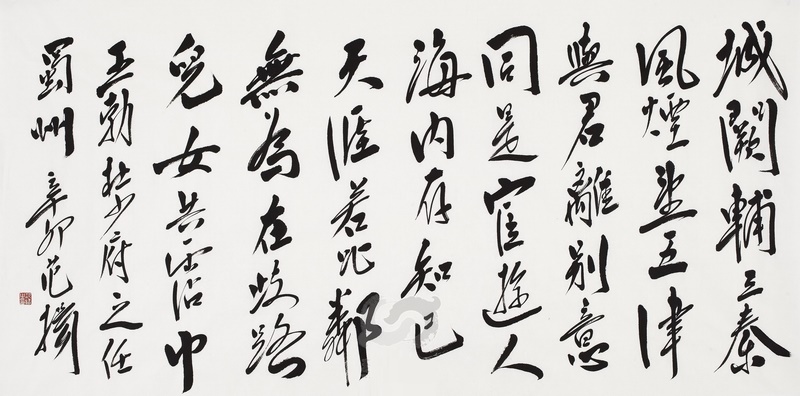 城闕輔三秦
風煙望五津
與君離別意
同是宦遊人
海内存知己
天涯若比鄰
無為在歧路
兒女共霑巾
王勃杜少府之任
蜀州 辛卯 范